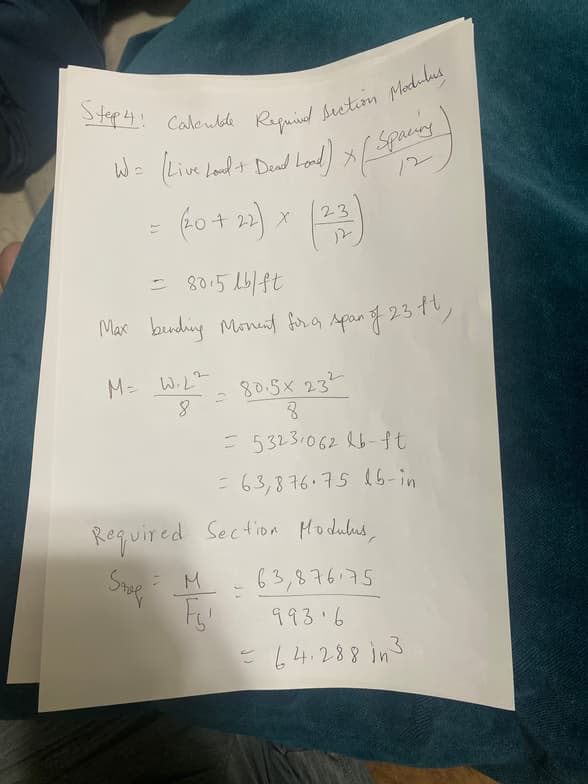 Step 4: Calculate Required Section Modulus,
W = (Live Load + Dead Load) × (Spacing/12)
= (20 + 22) × (23/12)
= 80.5 lb/ft
Max bending Moment for a span of 23 ft,
M = W.L²/8 = 80.5 × 23²/8
= 5323.062 lb-ft
= 63,876.75 lb-in
Required Section Modulus,
Sreq = M/Fb' = 63,876.75/993.6
= 64.288 in³